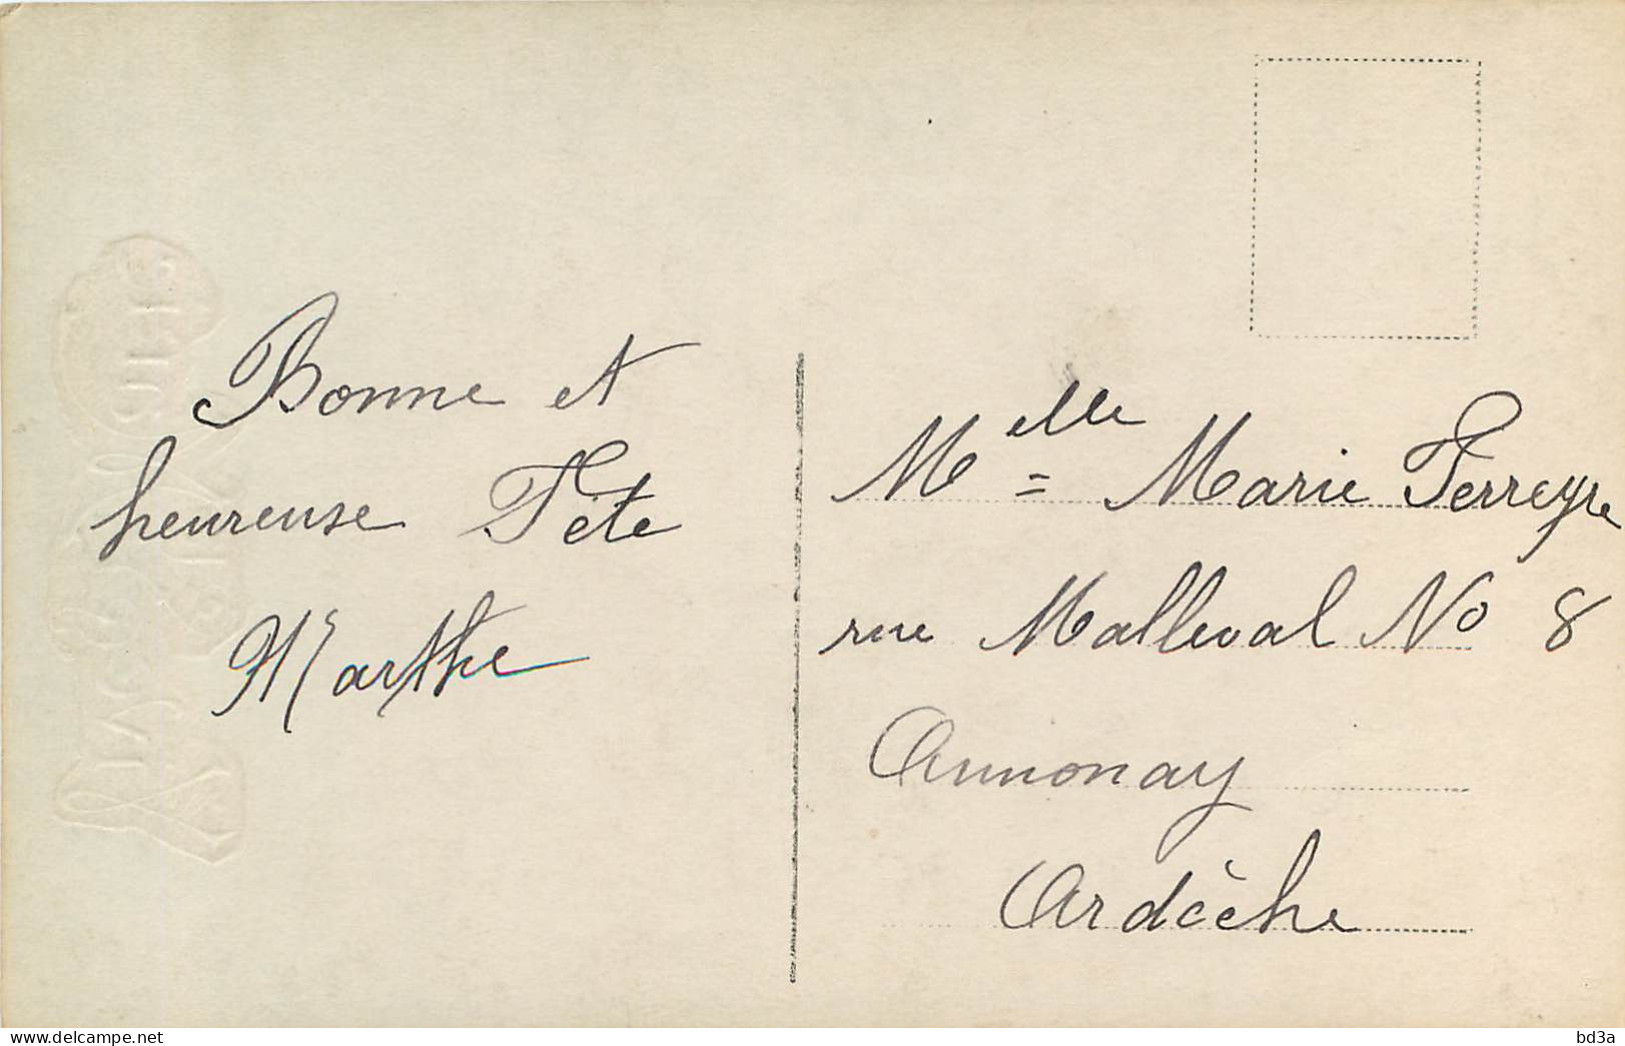 Bonne et
heureuse Fête
Marthe
Melle = Marie Ferreyre
rue Malleval No 8
Annonay
Ardèche
www.delcampe.net
bd3a